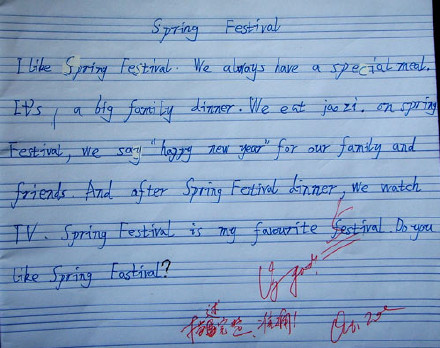 Spring Festival
I like Spring Festival. We always have a special meal.
It's, a big family dinner. We eat jaozi. on spring
Festival, we say "happy new year" for our family and
friends. And after Spring Festival dinner, we watch
TV. Spring Festival is my favourite festival. Do you
like Spring Fastival?
Vy good!